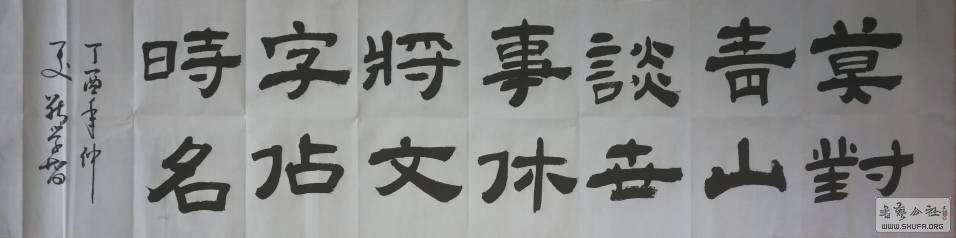 莫對
青山
談世
事休
將文
字佔
時名
丁酉年仲
夏
WWW.SHUFA.ORG